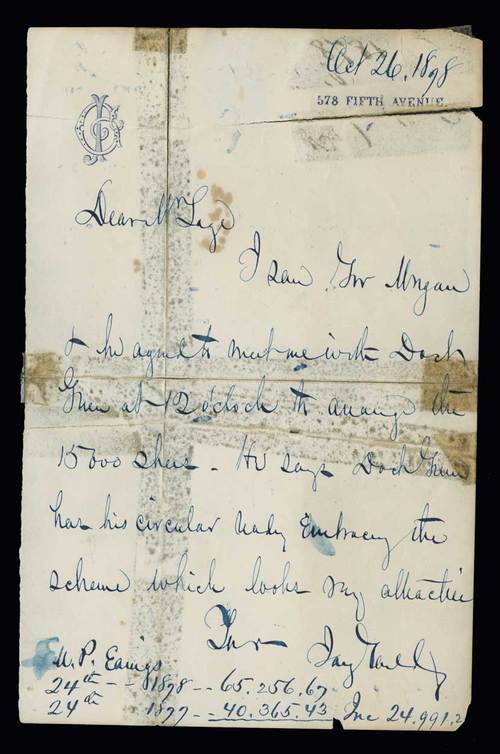 Oct 26, 1878
578 FIFTH AVENUE.
JG
Dear Mr Sage
I saw Gov Morgan
& he agreed to meet me with Dock
Green at 12 o'clock to arrange the
15000 shares - He says Dock Green
has his circular ready Embracing the
scheme which looks very attractive
Yours Jay Gould
U. P. Earnings
24th - - 1878 - - 65.256.67
24th 1877 - - 40.365.43 Inc 24.991.2